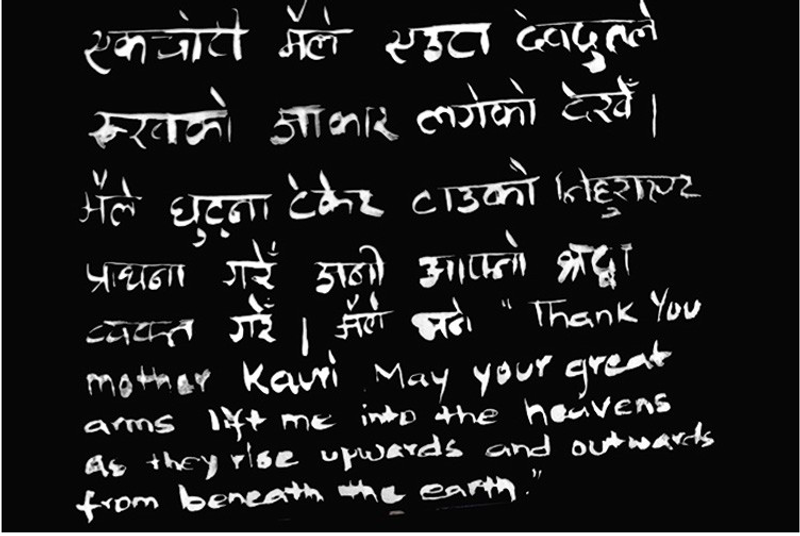 एकचोटी मैले एउटा देवदुतले
रूखको आकार लगेको देखेँ।
मैले घुँडा टेकेर टाउको निहुराएर
प्राथना गरेँ अनी आफ्नो श्रद्धा
व्यक्त गरेँ। मैले भने "Thank You
mother Kauri May your great
arms lift me into the heavens
as they rise upwards and outwards
from beneath the earth."